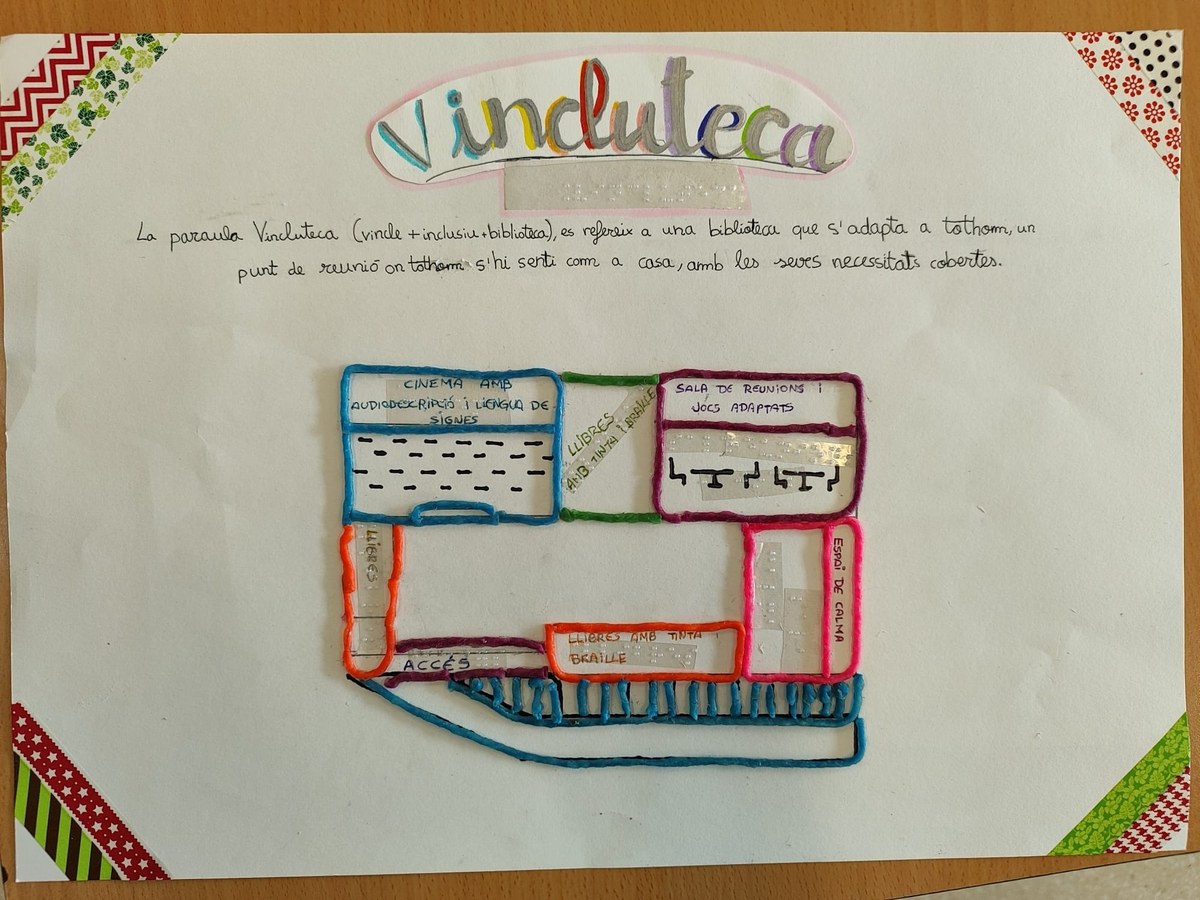 Vincluteca
La paraula Vincluteca (vincle + inclusiu + biblioteca), es refereix a una biblioteca que s'adapta a tothom, un
punt de reunió on tothom s'hi senti com a casa, amb les seves necessitats cobertes.
CINEMA AMB
AUDIODESCRIPCIÓ i LLENGUA DE
SIGNES
LLIBRES
AMB TINTA i BRAILLE
SALA DE REUNIONS i
JOCS ADAPTATS
LLIBRES
ESPAI DE CALMA
LLIBRES AMB TINTA i
BRAILLE
ACCÉS